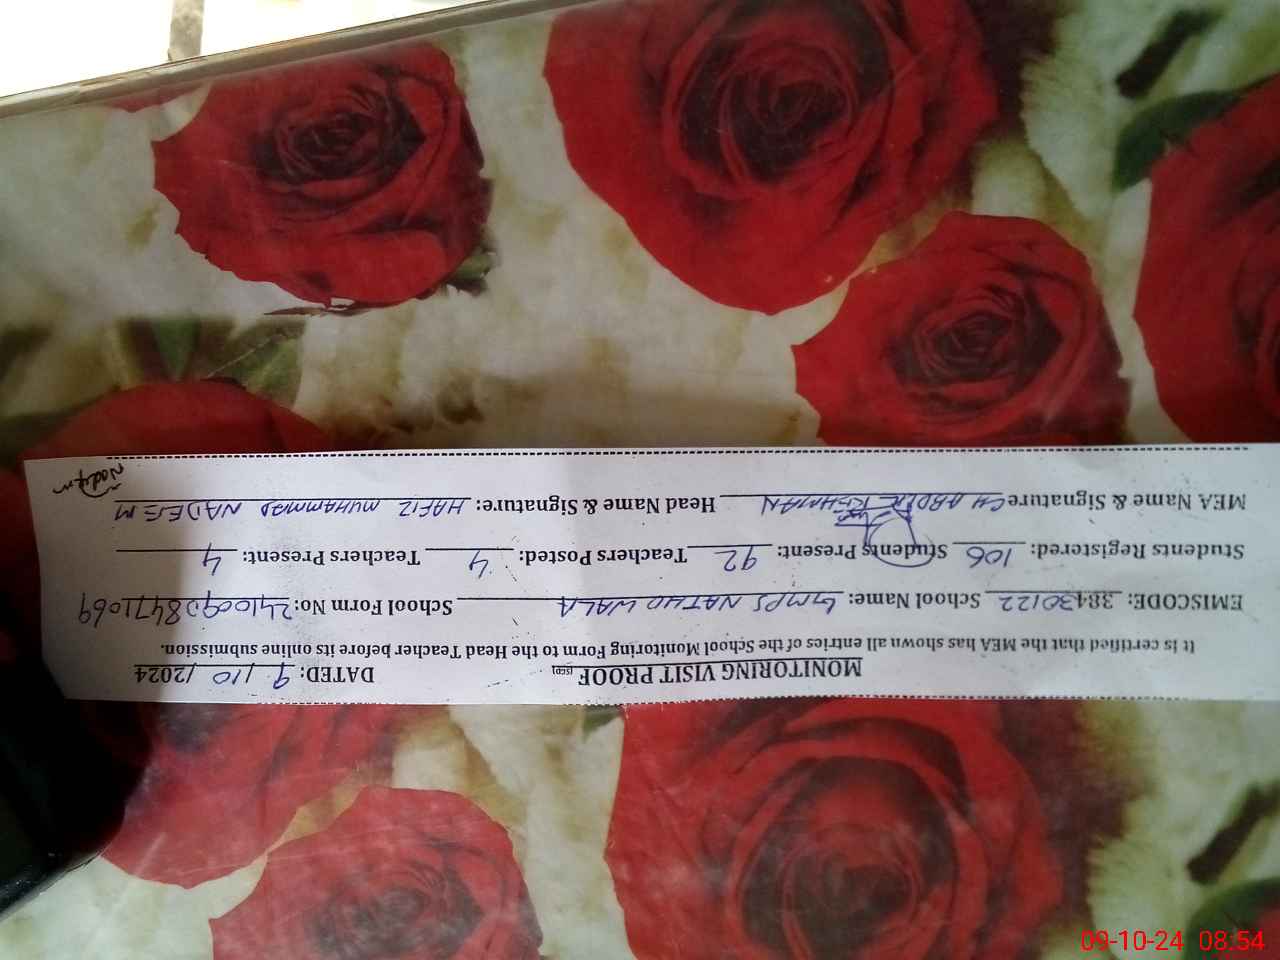 MONITORING VISIT PROOF [SED] DATED: 9 / 10 / 2024
It is certified that the MEA has shown all entries of the School Monitoring Form to the Head Teacher before its online submission.
EMISCODE: 38430122 School Name: GMPS NATHO WALA School Form No: 24100908471069
Students Registered: 106 Students Present: 92 Teachers Posted: 4 Teachers Present: 4
MEA Name & Signature CH ABDUL REHMAN Head Name & Signature: HAFIZ MUHAMMAD NADEEM
Nadeem
09-10-24 08:54